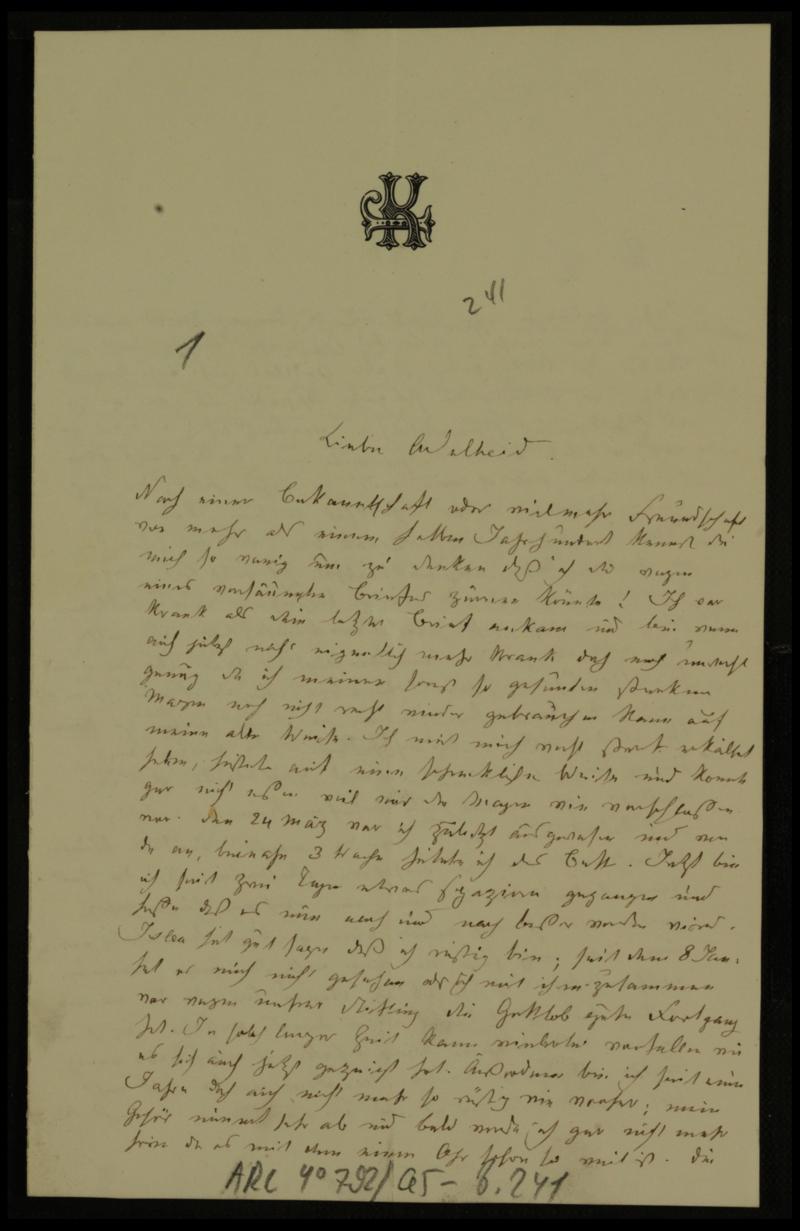 K
241
1
Lieber Adelheid.
Nach einer Bekanntschaft oder vielmehr Freundschaft
von mehr als einem halben Jahrhundert kennst du
mich so wenig um zu denken daß ich dir wegen
eines versäumten Briefes zürnen könnte! Ich war
krank als dein letzter Brief ankam und bin wenn
auch jetzt nicht eigentlich mehr krank doch noch
genug da ich meinen sonst so gesunden starken
Magen noch nicht recht wieder gebrauchen kann auf
meine alte Weise. Ich muß mich recht stark erkältet
haben, hustete auf eine schreckliche Weise und konnte
gar nicht essen weil mir der Magen wie verschlossen
war. Den 24 März war ich zuletzt ausgewesen und von
da an, beinahe 3 Wochen hütete ich das Bett. Jetzt bin
ich seit zwei Tagen etwas spazieren gegangen und
hoffe daß es nun nach und nach besser werden wird.
hat gut sagen daß ich rüstig bin; seit dem 8 Jan.
hat er mich nicht gesehen als ich mit ihm zusammen
war wegen unserer Stiftung die Gottlob guten Fortgang
hat. In solch langer Zeit kann vielerlei vorfallen wie
es sich auch jetzt gezeigt hat. Außerdem bin ich seit einem
Jahre doch auch nicht mehr so rüstig wie vorher; mein
Gehör nimmt sehr ab und bald werde ich gar nicht mehr
hören da es mit dem einen Ohr schon so weit ist. Die
ARC 4° 792/A5-6.241